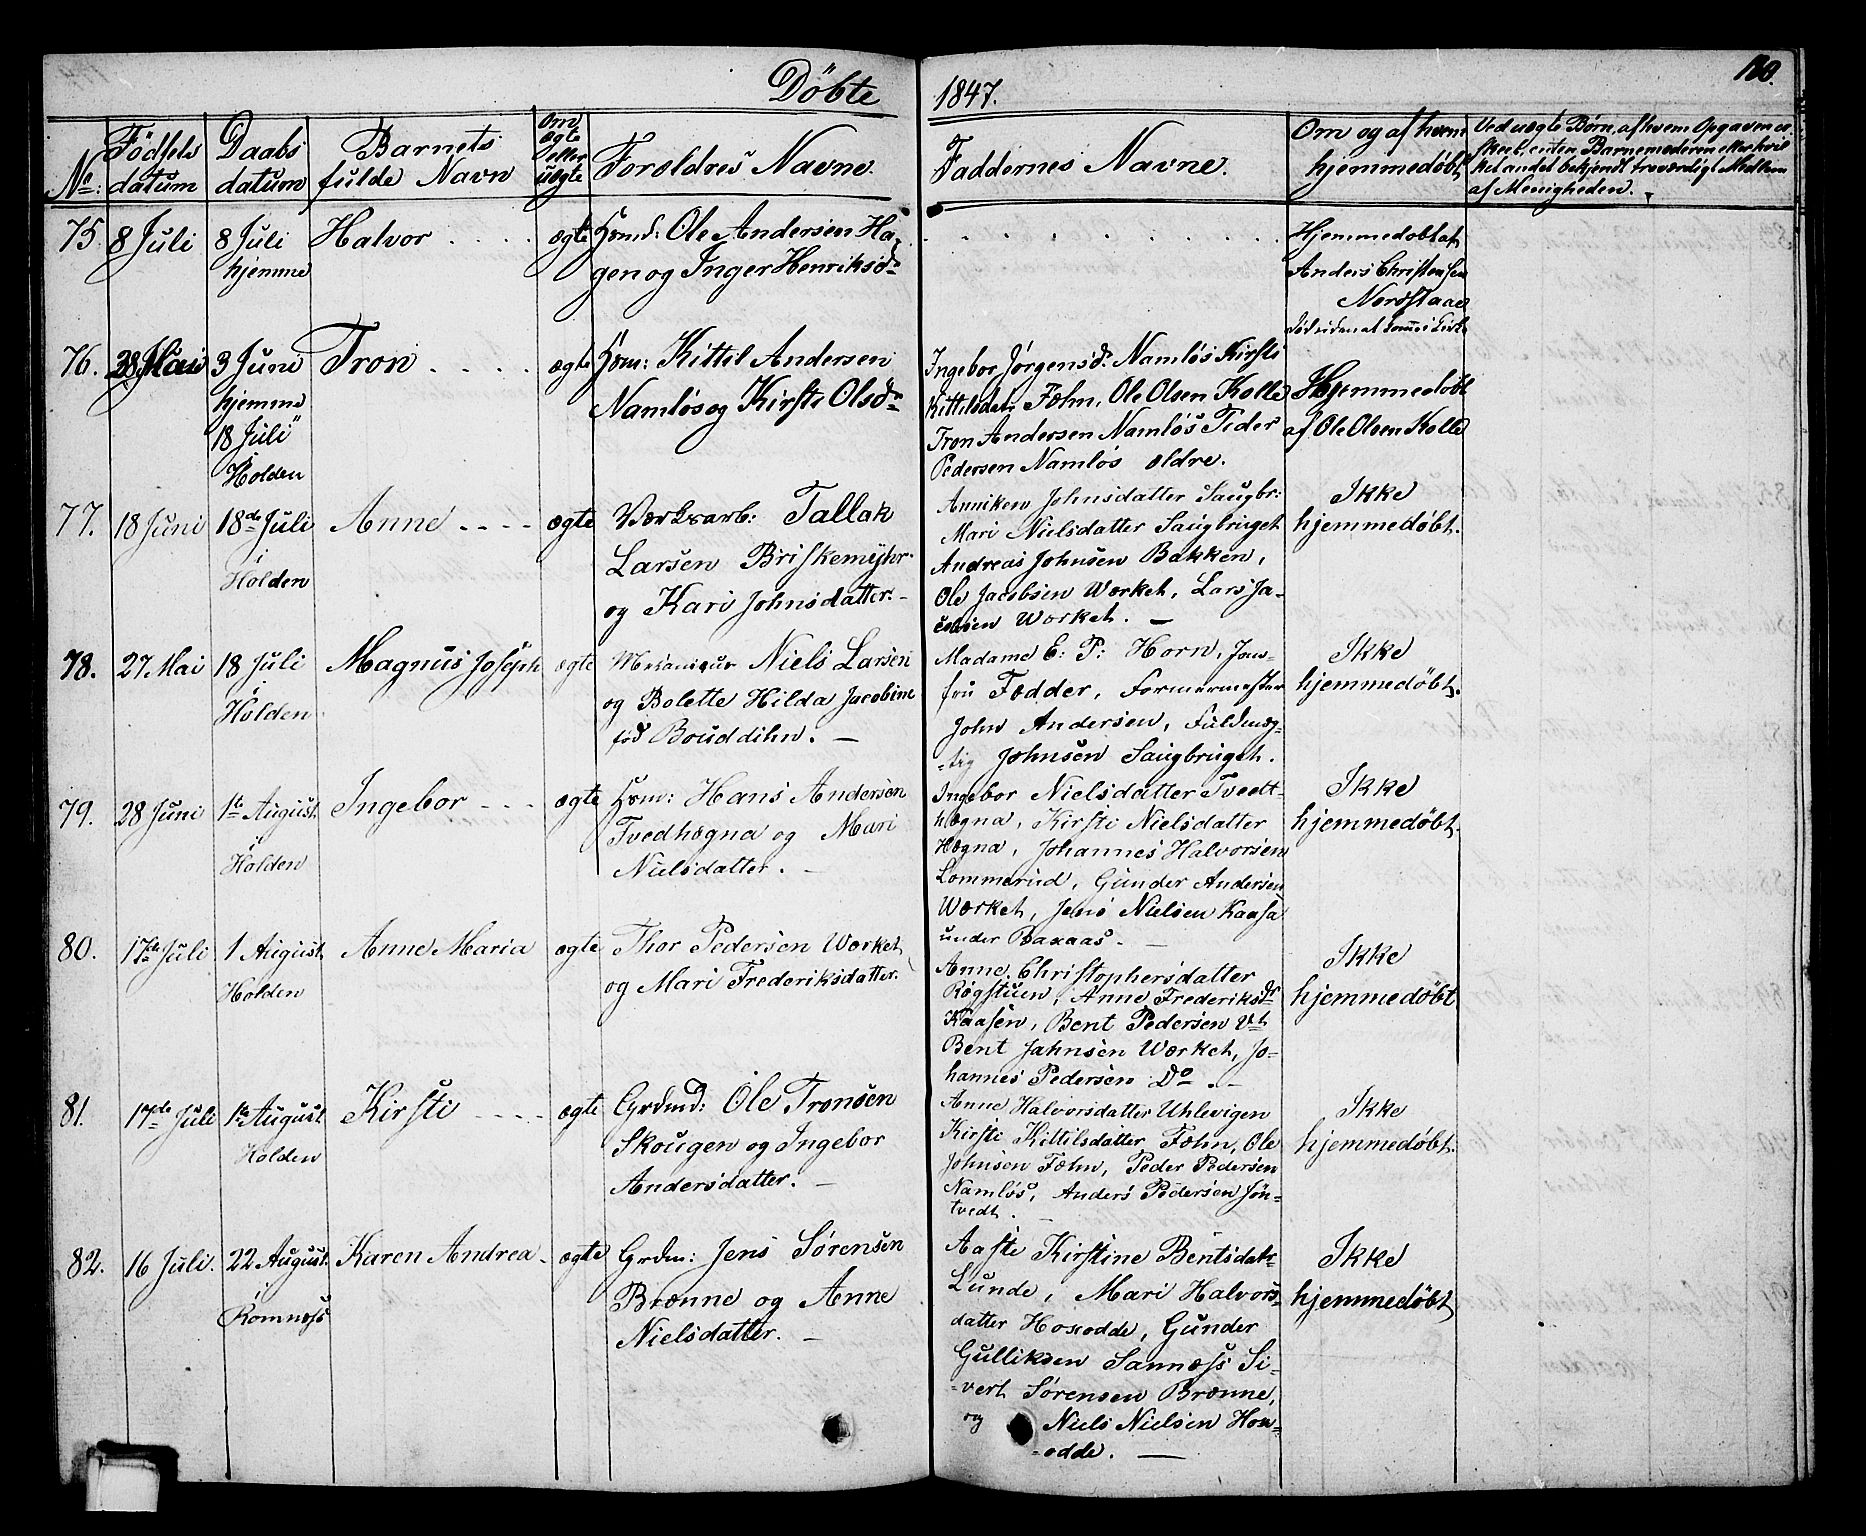 Döbte
1847.
120.
No:
Födsels datum
Daabs datum
Barnets fulde Navn
Om ægte eller uægte
Foroldres Navne.
Faddernes Navne.
Om og af hvem hjemmedøbt
Ved uægte Børn, af hvem Opgaven er
skeet, enten Barnemoderen eller hvil
ket andet bekjendt troværdigt Medlem
af Menigheden.
75. 8 Juli
8 Juli
hjemme
Halvor
ægte
Huusmd: Ole Andersen Ha-
gen og Inger Henriksdr
Hjemmedöbt af
Anders Christensen
Nordstaae
76. 28 Mai
3 Juni
hjemme
18 Juli
Holden
Tron
ægte
Huusm: Kittil Andersen
Namløs og Kirsti Olsdr
Ingebor Jørgensd. Namløs Kirsti
Kittilsdtr Fæhn, Ole Olsen Kolle
Tron Andersen Namløs Peder
Pedersen Namløs ældre.
Hjemmedöbt
af Ole Olsen Kolle
77. 18 Juni
18de Juli
i
Holden
Anne
ægte
Værksarb: Tallak
Larsen Briskemyhr
og Kari Johnsdatter. -
Anniken Johnsdatter Saugbr:
Mari Nielsdatter Saugbruget
Andreas Johnsen Bakken,
Ole Jacobsen Værket, Lars Ja-
cobsen Værket. -
Ikke
hjemmedøbt.
78. 27. Mai
18 Juli
i
Holden
Magnus Joseph
ægte
Mekanicus Niels Larsen
og Bolette Hilda Jacobine
fød Bouddihn. -
Madame E: P: Horn, Jom-
fru Fædder, Formermester
John Andersen, Fuldmæg-
-tig Johnsen Saugbruget.
Ikke
hjemmedøbt.
79. 28 Juni
1te August.
i
Holden
Ingebor
ægte
Huusm: Hans Andersen
Tvedhægna og Mari
Nielsdatter. -
Ingebor Nielsdatter Tveet-
hægna, Kirsti Nielsdatter
Hægna, Johannes Halvorsen
Lommerud, Gunder Andersen
Værket, Jens Nielsen Kaasa
under Baxaas. -
Ikke
hjemmedøbt.
80. 17de Juli
1 August
Holden
Anne Maria
ægte
Thor Pedersen Værket
og Mari Frederiksdatter.
Anne Christophersdatter
Røgstuen, Anne Frederiksdr
Kaasen, Bent Pedersen Vt
Bent Jahnsen Værket, Jo-
hannes Pedersen Do. -
Ikke
hjemmedøbt
81. 17de Juli
1te August
Holden
Kirsti
ægte
Grdmd: Ole Tronsen
Skougen og Ingebor
Andersdatter. -
Anne Halvorsdatter Uhlevigen
Kirsti Kittilsdatter Fæhn, Ole
Johnsen Fæhn, Peder Pedersen
Namløs, Anders Pedersen Søn-
tvedt. -
Ikke
hjemmedøbt.
82. 16 Juli.
22 August.
i
Romnæss
Karen Andrea
ægte
Grdm: Jens Sørensen
Brænne og Anne
Nielsdatter. -
Aaste Kirstine Bentsdatr
Lunde, Mari Halvors-
datter Hoxodde, Gunder
Gulliksen Sannæss Si-
-vert Sørensen Brænne,
og Niels Nielsen Hox-
-odde. -
Ikke
hjemmedøbt